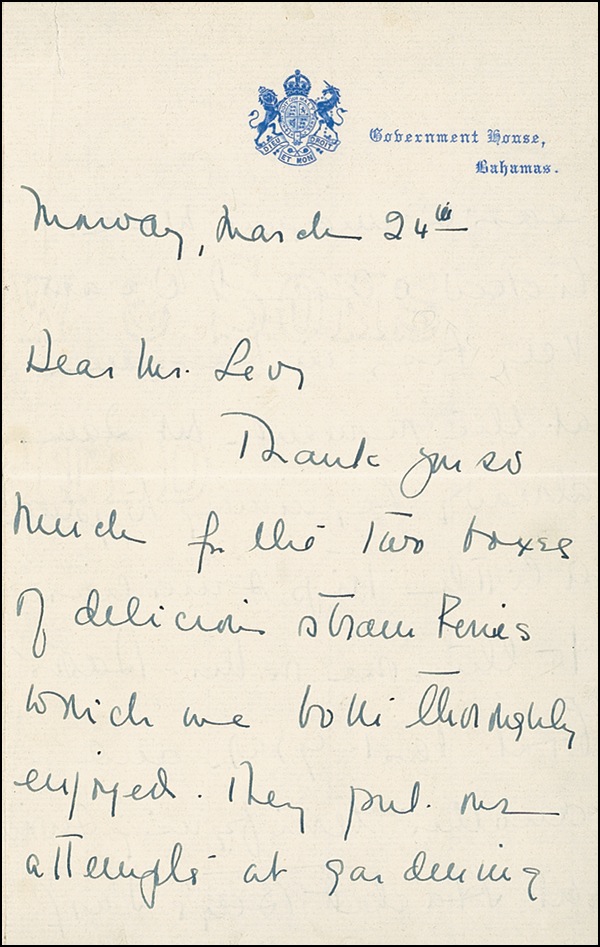 DIEU ET MON DROIT
Government House,
Bahamas.
Monday, March 24th
Dear Mr. Levy
Thank you so
much for the two boxes
of delicious strawberries
which we both thoroughly
enjoyed. They put our
attempts at gardening